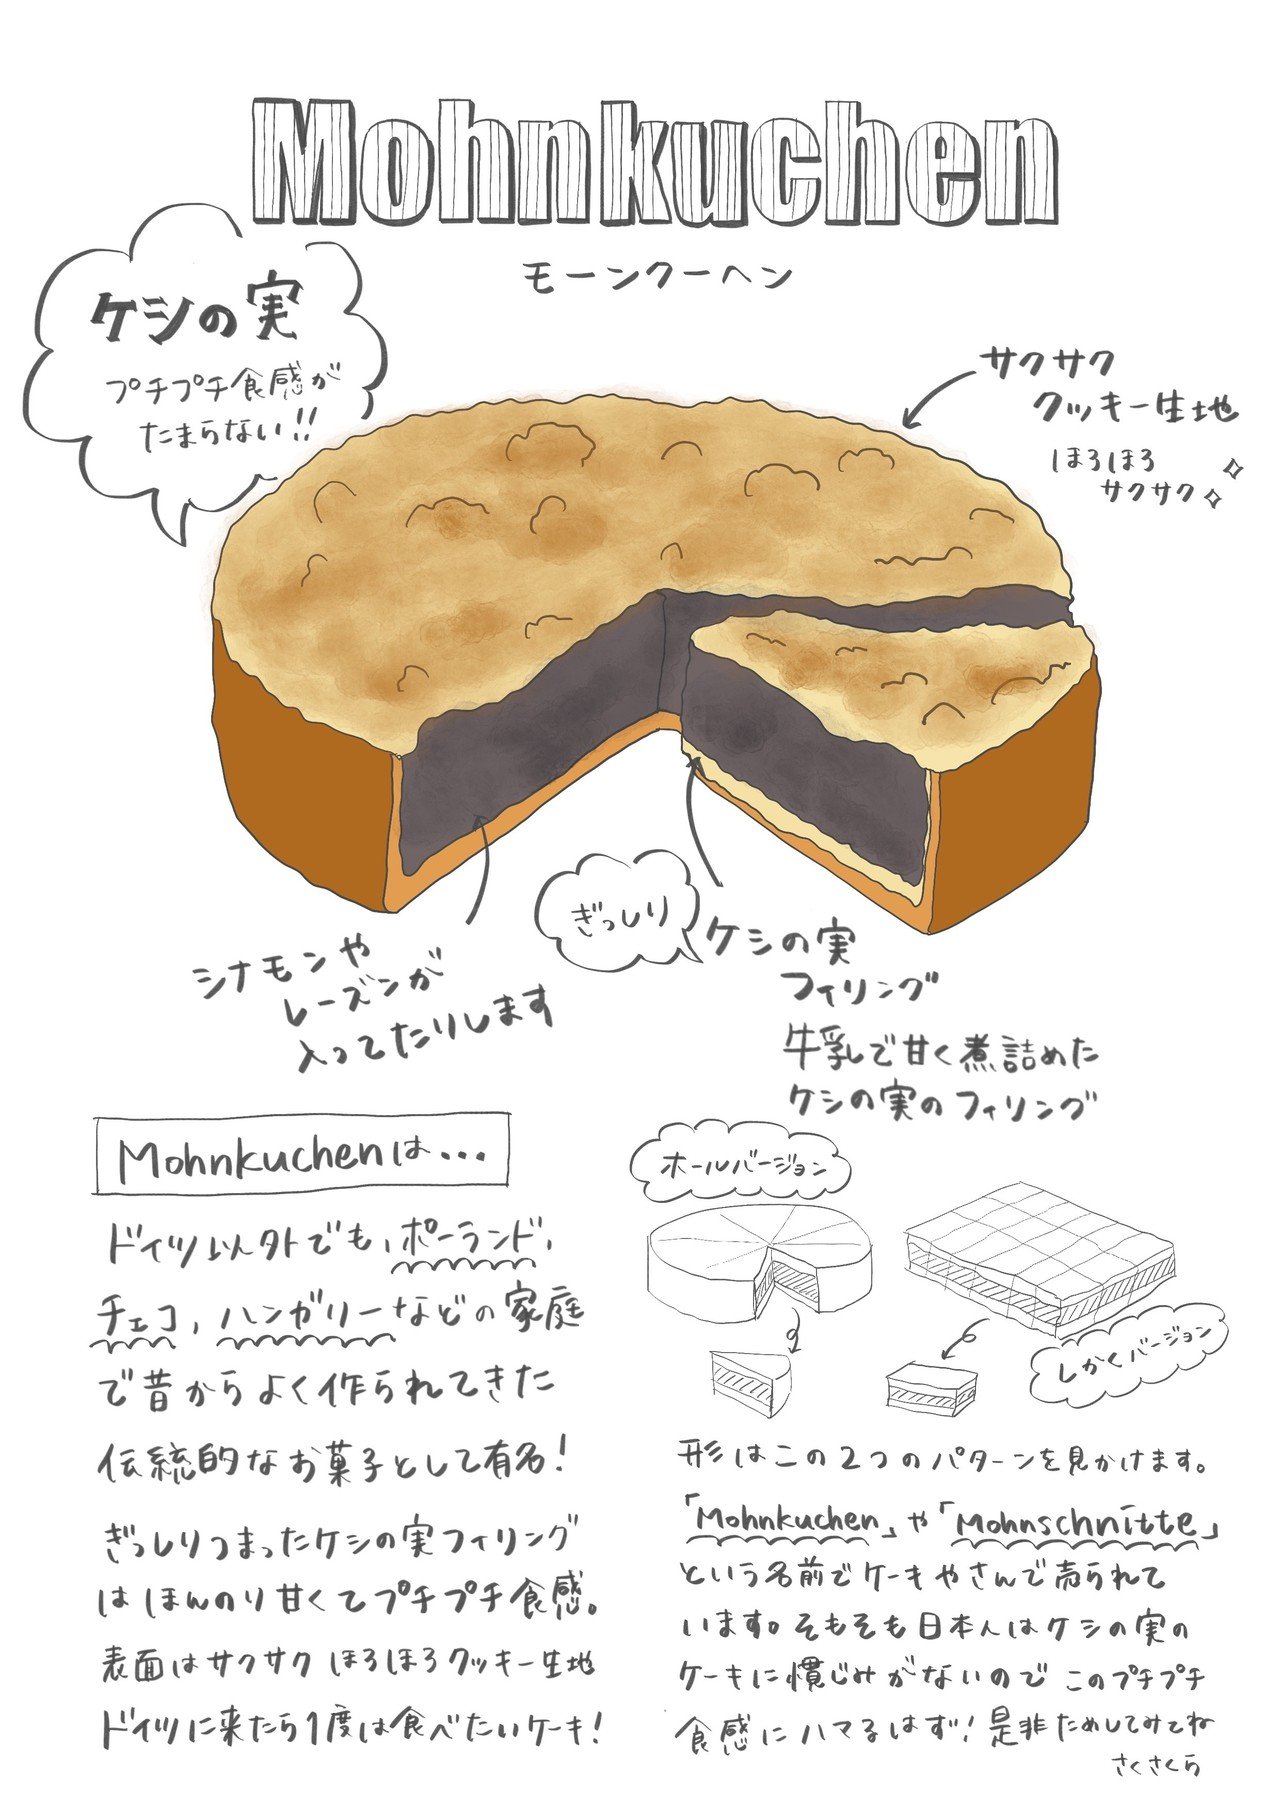 Mohnkuchen
モーンクーヘン
ケシの実
プチプチ食感が
たまらない!!
サクサク
クッキー生地
ほろほろ
サクサク
ぎっしり
シナモンや
レーズンが
入ってたりします
ケシの実
フィリング
牛乳で甘く煮詰めた
ケシの実のフィリング
Mohnkuchenは...
ドイツ以外でも、ポーランド、
チェコ、ハンガリーなどの家庭
で昔からよく作られてきた
伝統的なお菓子として有名!
ぎっしりつまったケシの実フィリング
はほんのり甘くてプチプチ食感。
表面はサクサクほろほろクッキー生地
ドイツに来たら1度は食べたいケーキ!
ホールバージョン
しかくバージョン
形はこの2つのパターンを見かけます。
「Mohnkuchen」や「Mohnschnitte」
という名前でケーキやさんで売られて
います。そもそも日本人はケシの実の
ケーキに慣じみがないのでこのプチプチ
食感にハマるはず!是非ためしてみてね
さくさくら